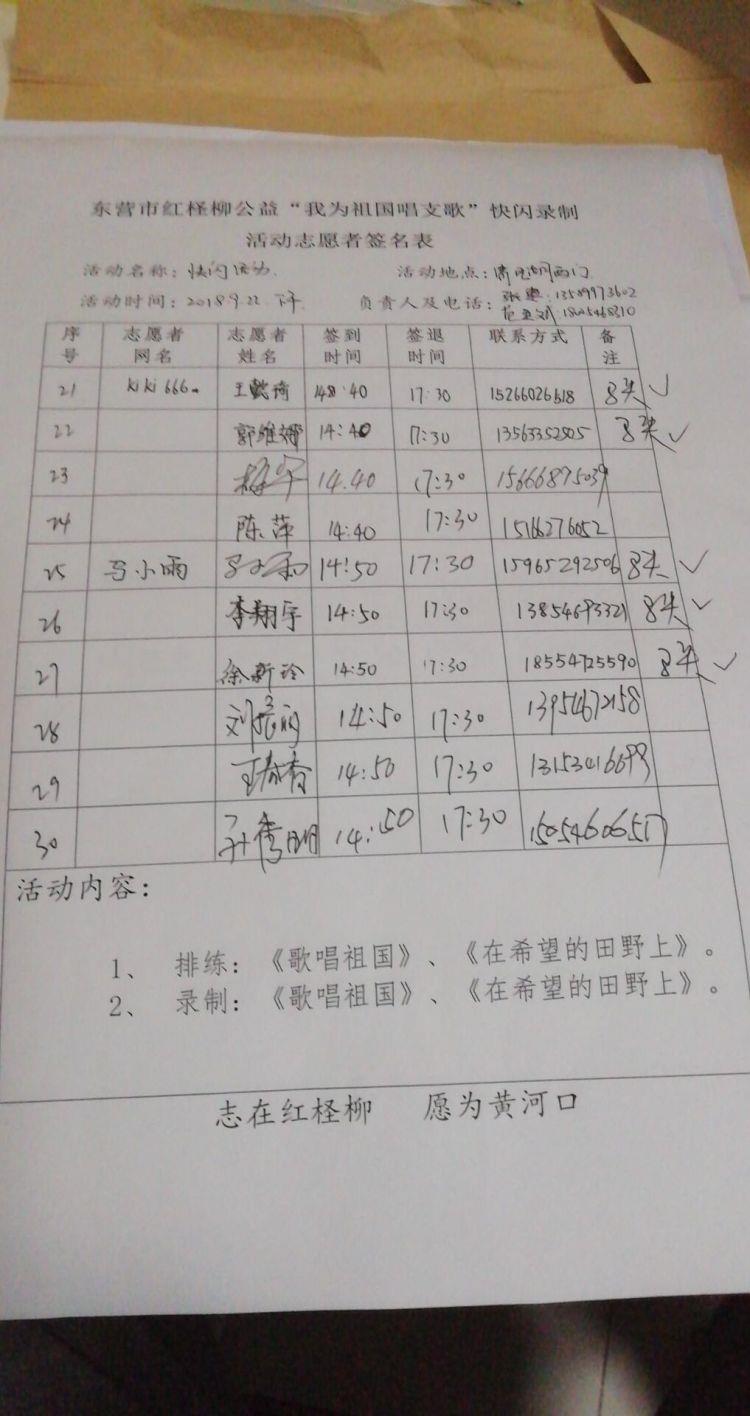 东营市红柽柳公益“我为祖国唱支歌”快闪录制
活动志愿者签名表
活动名称：快闪活动 活动地点：清风湖西门
活动时间：2018.9.22 下午 负责人及电话：张 13589973602
范 18005468310
序号 志愿者网名 志愿者姓名 签到时间 签退时间 联系方式 备注
21 kiki 666 王懿琦 14:40 17:30 15266026618 8头 ✓
22 郭维娜 14:40 17:30 13563352505 8头 ✓
23 14.40 17:30 15666895039
24 陈萍 14:40 17:30 15166276052
25 马小雨 14:50 17:30 15965292506 8头 ✓
26 李翔宇 14:50 17:30 13854693321 8头 ✓
27 徐新玲 14:50 17:30 18554725590 8头 ✓
28 14:50 17:30 13954672158
29 王春香 14:50 17:30 13153416699
30 孙秀明 14:50 17:30 15054606517
活动内容：
1、 排练：《歌唱祖国》、《在希望的田野上》。
2、 录制：《歌唱祖国》、《在希望的田野上》。
志在红柽柳 愿为黄河口